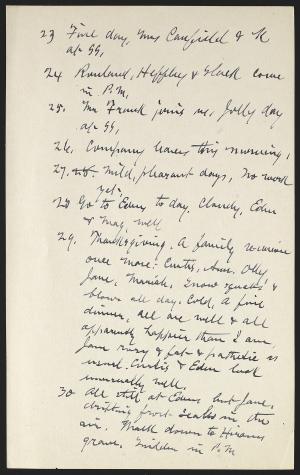 23 Fine day, Mrs Caufield & K
at SS,
24 Rowland, Heffley & Slack come
in P.M.
25. Mr Franck joins us, Jolly day
at SS,
26. Company leaves this morning,
27, 28. Mild, pleasant days, No work
yet,
28 Go to Eden to day. Clarely, Eden
& Mag, well
29. Thanksgiving. A family reunion
once more: Curtis, Ann, Olly
Jane, Mariah. Snow squals &
blows all day. Cold, A fine
dinner, all are well & all
apparently happier than I am.
Jane rosy & fat & partridie as
usual. Curtis & Eden look
unusually well.
30 All still at Edens but Jane,
drifting frost scales in the
air. Walk down to Hirams
grave. Gridden in P.M